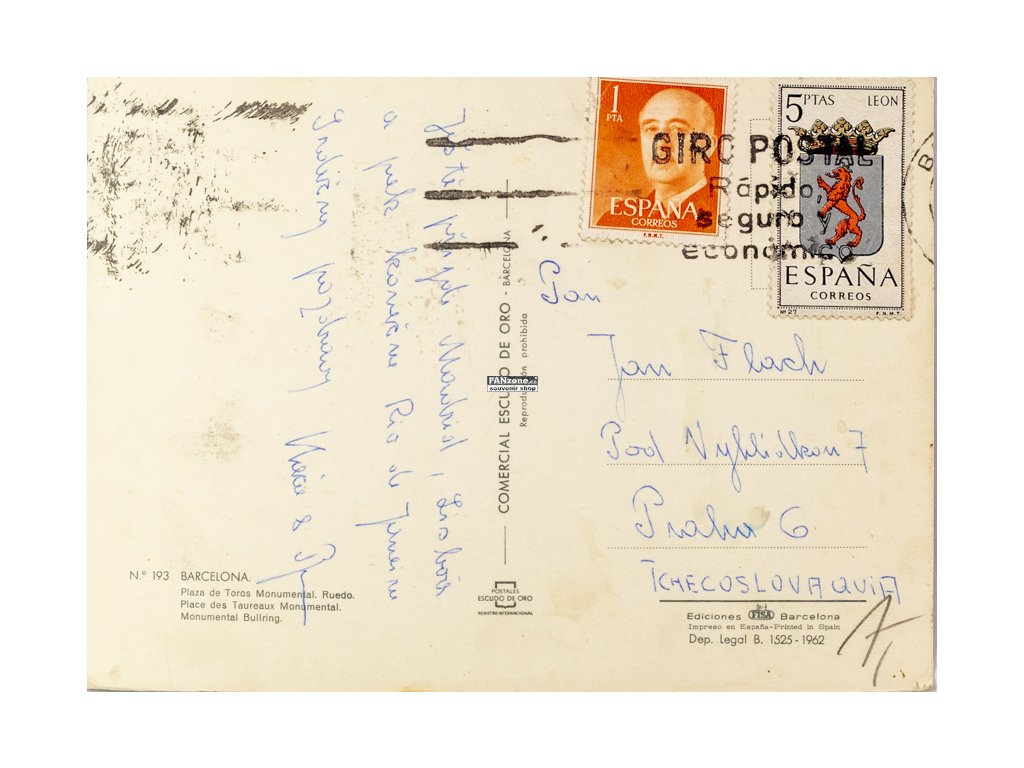 1
PTA
ESPAÑA
CORREOS
F.N.M.T.
5 PTAS LEON
ESPAÑA
CORREOS
Nº 27 F.N.M.T.
GIRO POSTAL
Rápido,
seguro y
económico
B
Ještě přijde Madrid, Lisboa
a pak konečně Rio de Janeiro
Srdečně pozdravy
Pan
Jan Flach
Pod Vyhlídkou 7
Praha 6
TCHECOSLOVAQUIA
COMERCIAL ESCUDO DE ORO - BARCELONA
Reproducción prohibida
FANzone
souvenir shop
N.º 193 BARCELONA.
Plaza de Toros Monumental. Ruedo.
Place des Taureaux Monumental.
Monumental Bullring.
POSTALES
ESCUDO DE ORO
REGISTRO INTERNACIONAL
Ediciones FISA Barcelona
Impreso en España-Printed in Spain
Dep. Legal B. 1525-1962